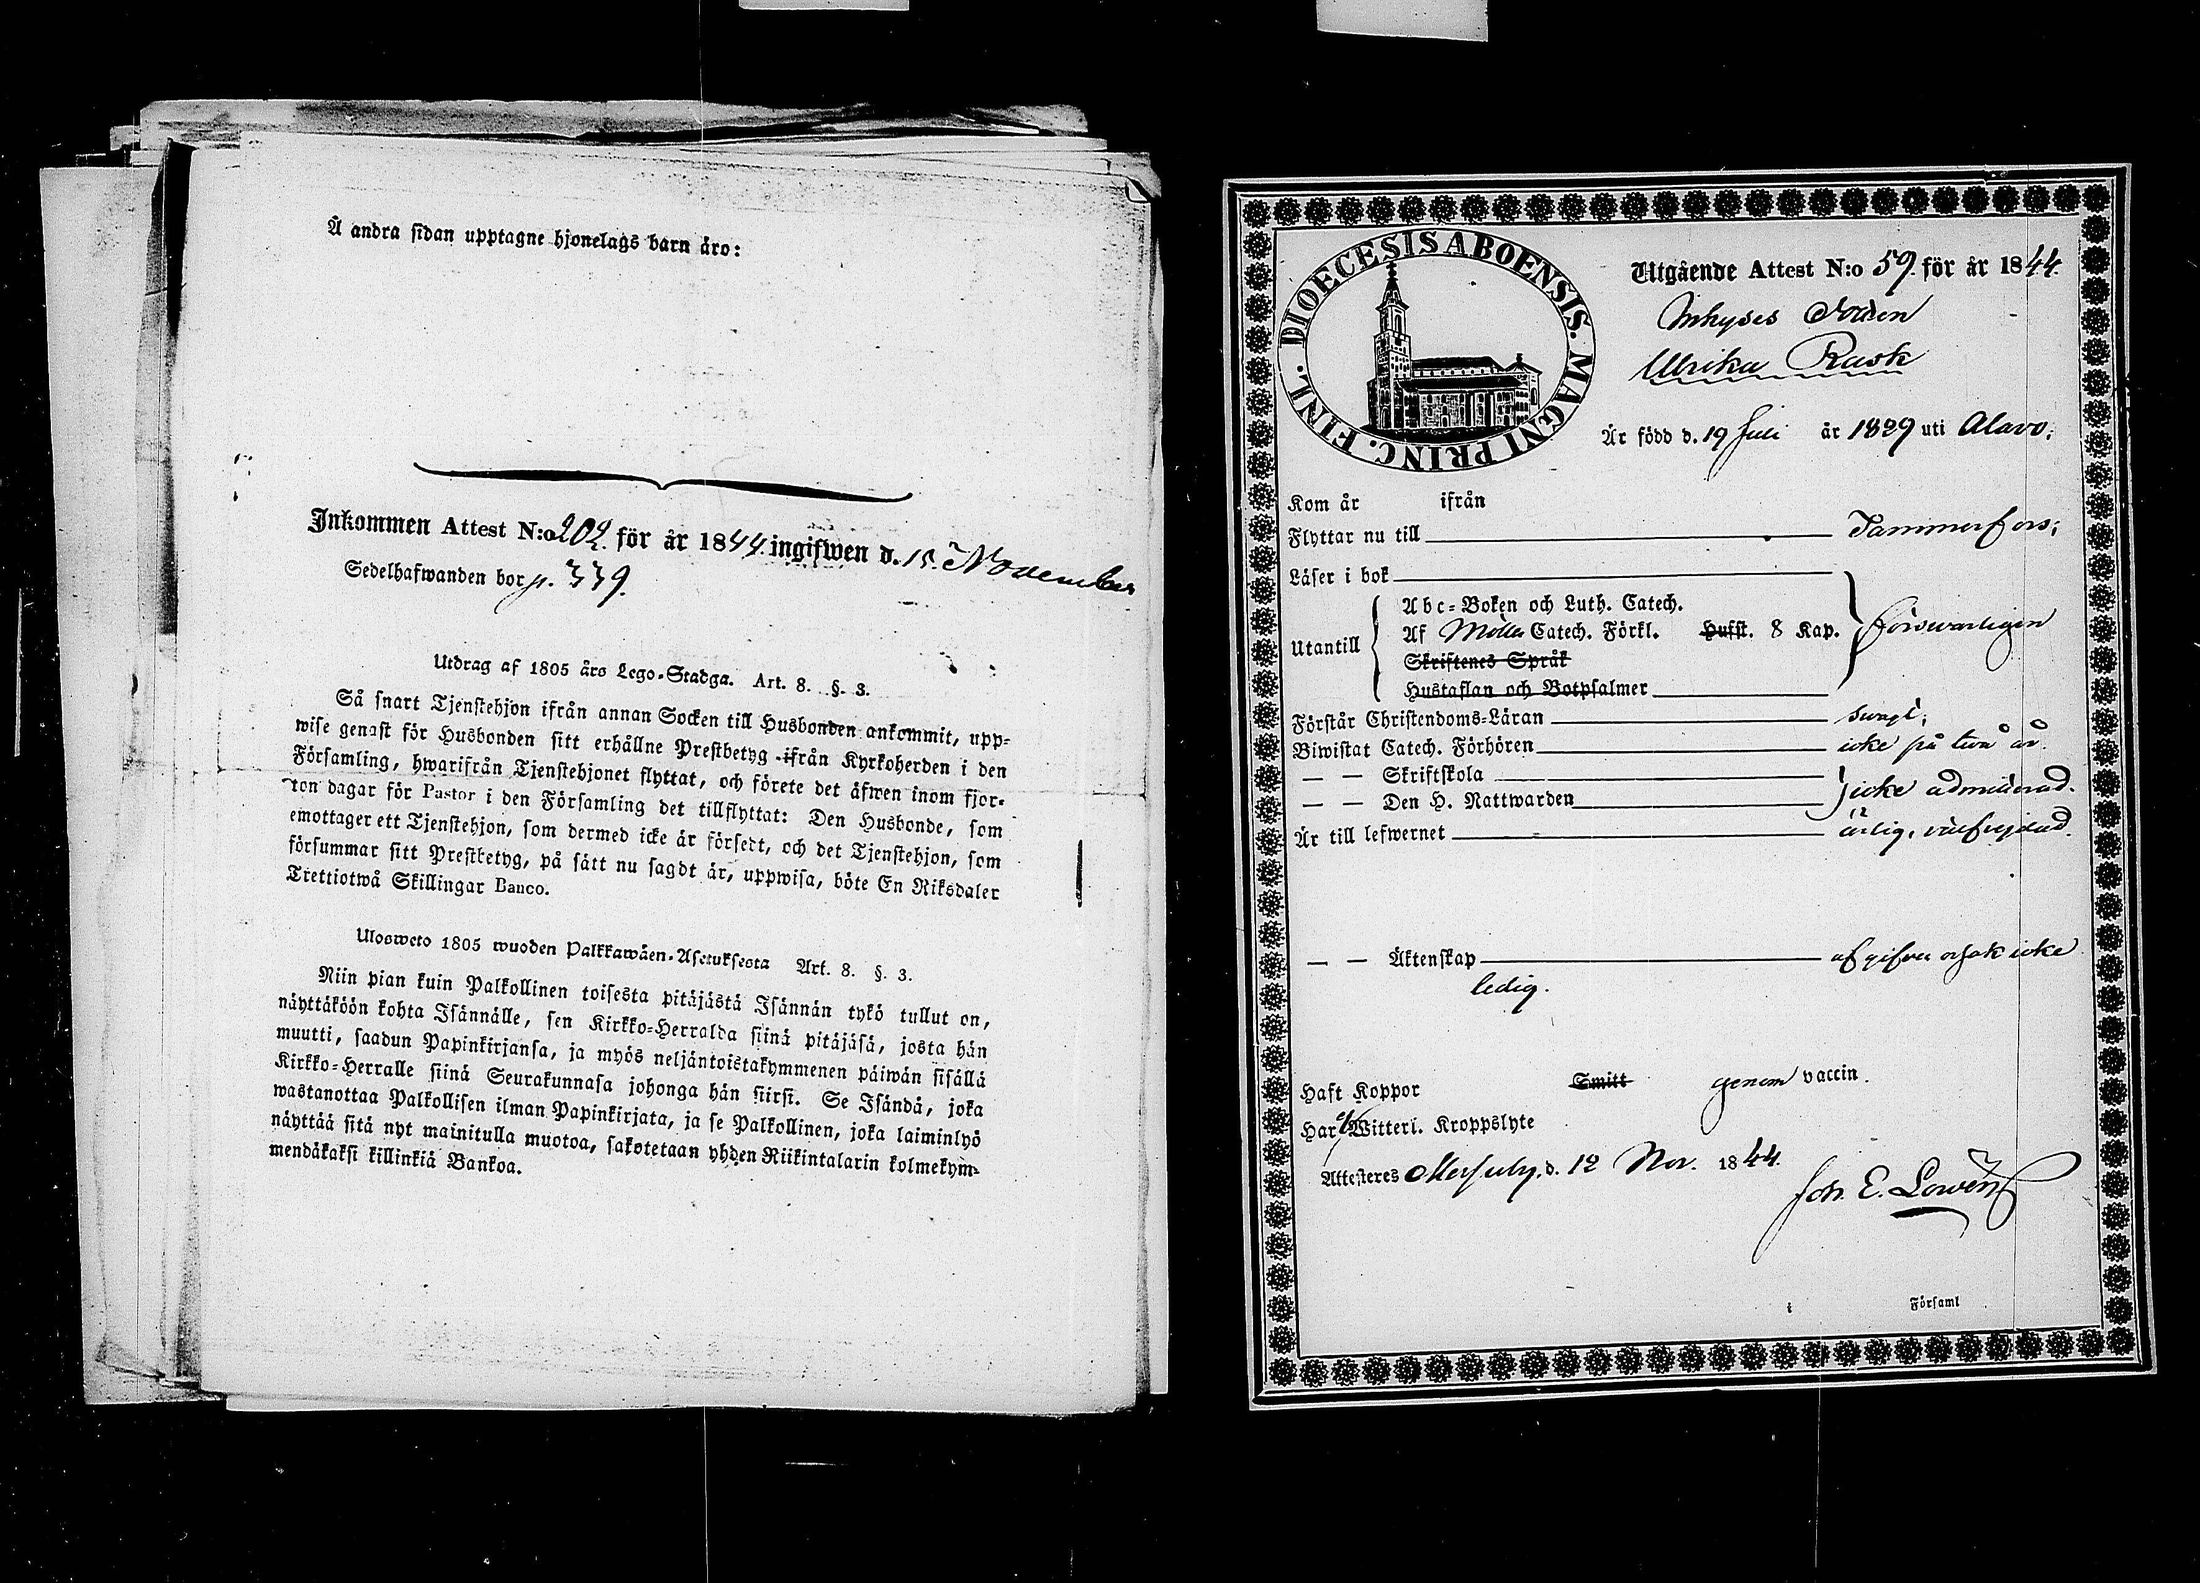 Å andra sidan upptagne hjonelags barn äro:
Inkommen Attest N:o 202. för år 1844. ingifwen d. 15. November
Sedelhafwanden bor p. 339.
Utdrag af 1805 års Lego-Stadga. Art. 8. §. 3.
Så snart Tjenstehjon ifrån annan Socken till Husbonden ankommit, upp-
wise genast för Husbonden sitt erhållne Prestbetyg ifrån Kyrkoherden i den
Församling, hwarifrån Tjenstehjonet flyttat, och förete det äfwen inom fjor-
ton dagar för Pastor i den Församling det tillflyttat: Den Husbonde, som
emottager ett Tjenstehjon, som dermed icke är försedt, och det Tjenstehjon, som
försummar sitt Prestbetyg, på sätt nu sagdt är, uppwisa, böte En Riksdaler
Trettiotwå Skillingar Banco.
Ulosweto 1805 wuoden Palkkawäen-Asetuksesta Art. 8. §. 3.
Niin pian kuin Palkollinen toisesta pitäjästä Isännän tykö tullut on,
näyttäköön kohta Isännälle, sen Kirkko-Herralda siinä pitäjäsä, josta hän
muutti, saadun Papinkirjansa, ja myös neljäntoistakymmenen päiwän sisällä
Kirkko-Herralle siinä Seurakunnasa johonga hän siirsi. Se Isändä, joka
wastanottaa Palkollisen ilman Papinkirjata, ja se Palkollinen, joka laiminlyö
näyttää sitä nyt mainitulla muotoa, sakotetaan yhden Riikintalarin kolmekym-
mendäkaksi killinkiä Bankoa.
DIOECESIS ABOENSIS. MAGNI PRINC. FINL.
Utgående Attest N:o 59. för år 1844.
Inhyses
Ulrika Rask
Är född d. 19 Juli år 1829 uti Alavo;
Kom år ifrån
Flyttar nu till Tammerfors;
Läser i bok
Abc-Boken och Luth. Catech.
Utantill Af Möllers Catech. Förkl. Hufst. 8 Kap. försvarligen
Skriftenes Språk
Hustaflan och Botpsalmer
Förstår Christendoms-Läran svagt;
Biwistat Catech. Förhören icke på två år.
— — Skriftskola
— — Den H. Nattwarden icke admitterad.
Är till lefwernet ärlig, välfrejdad.
— — Äktenskap af gifven orsak icke
ledig.
Haft Koppor Smitt genom vaccin.
Har ej Witterl. Kroppslyte
Attesteres d. 12 Nov. 1844.
Joh. E. Lowén
i Församl